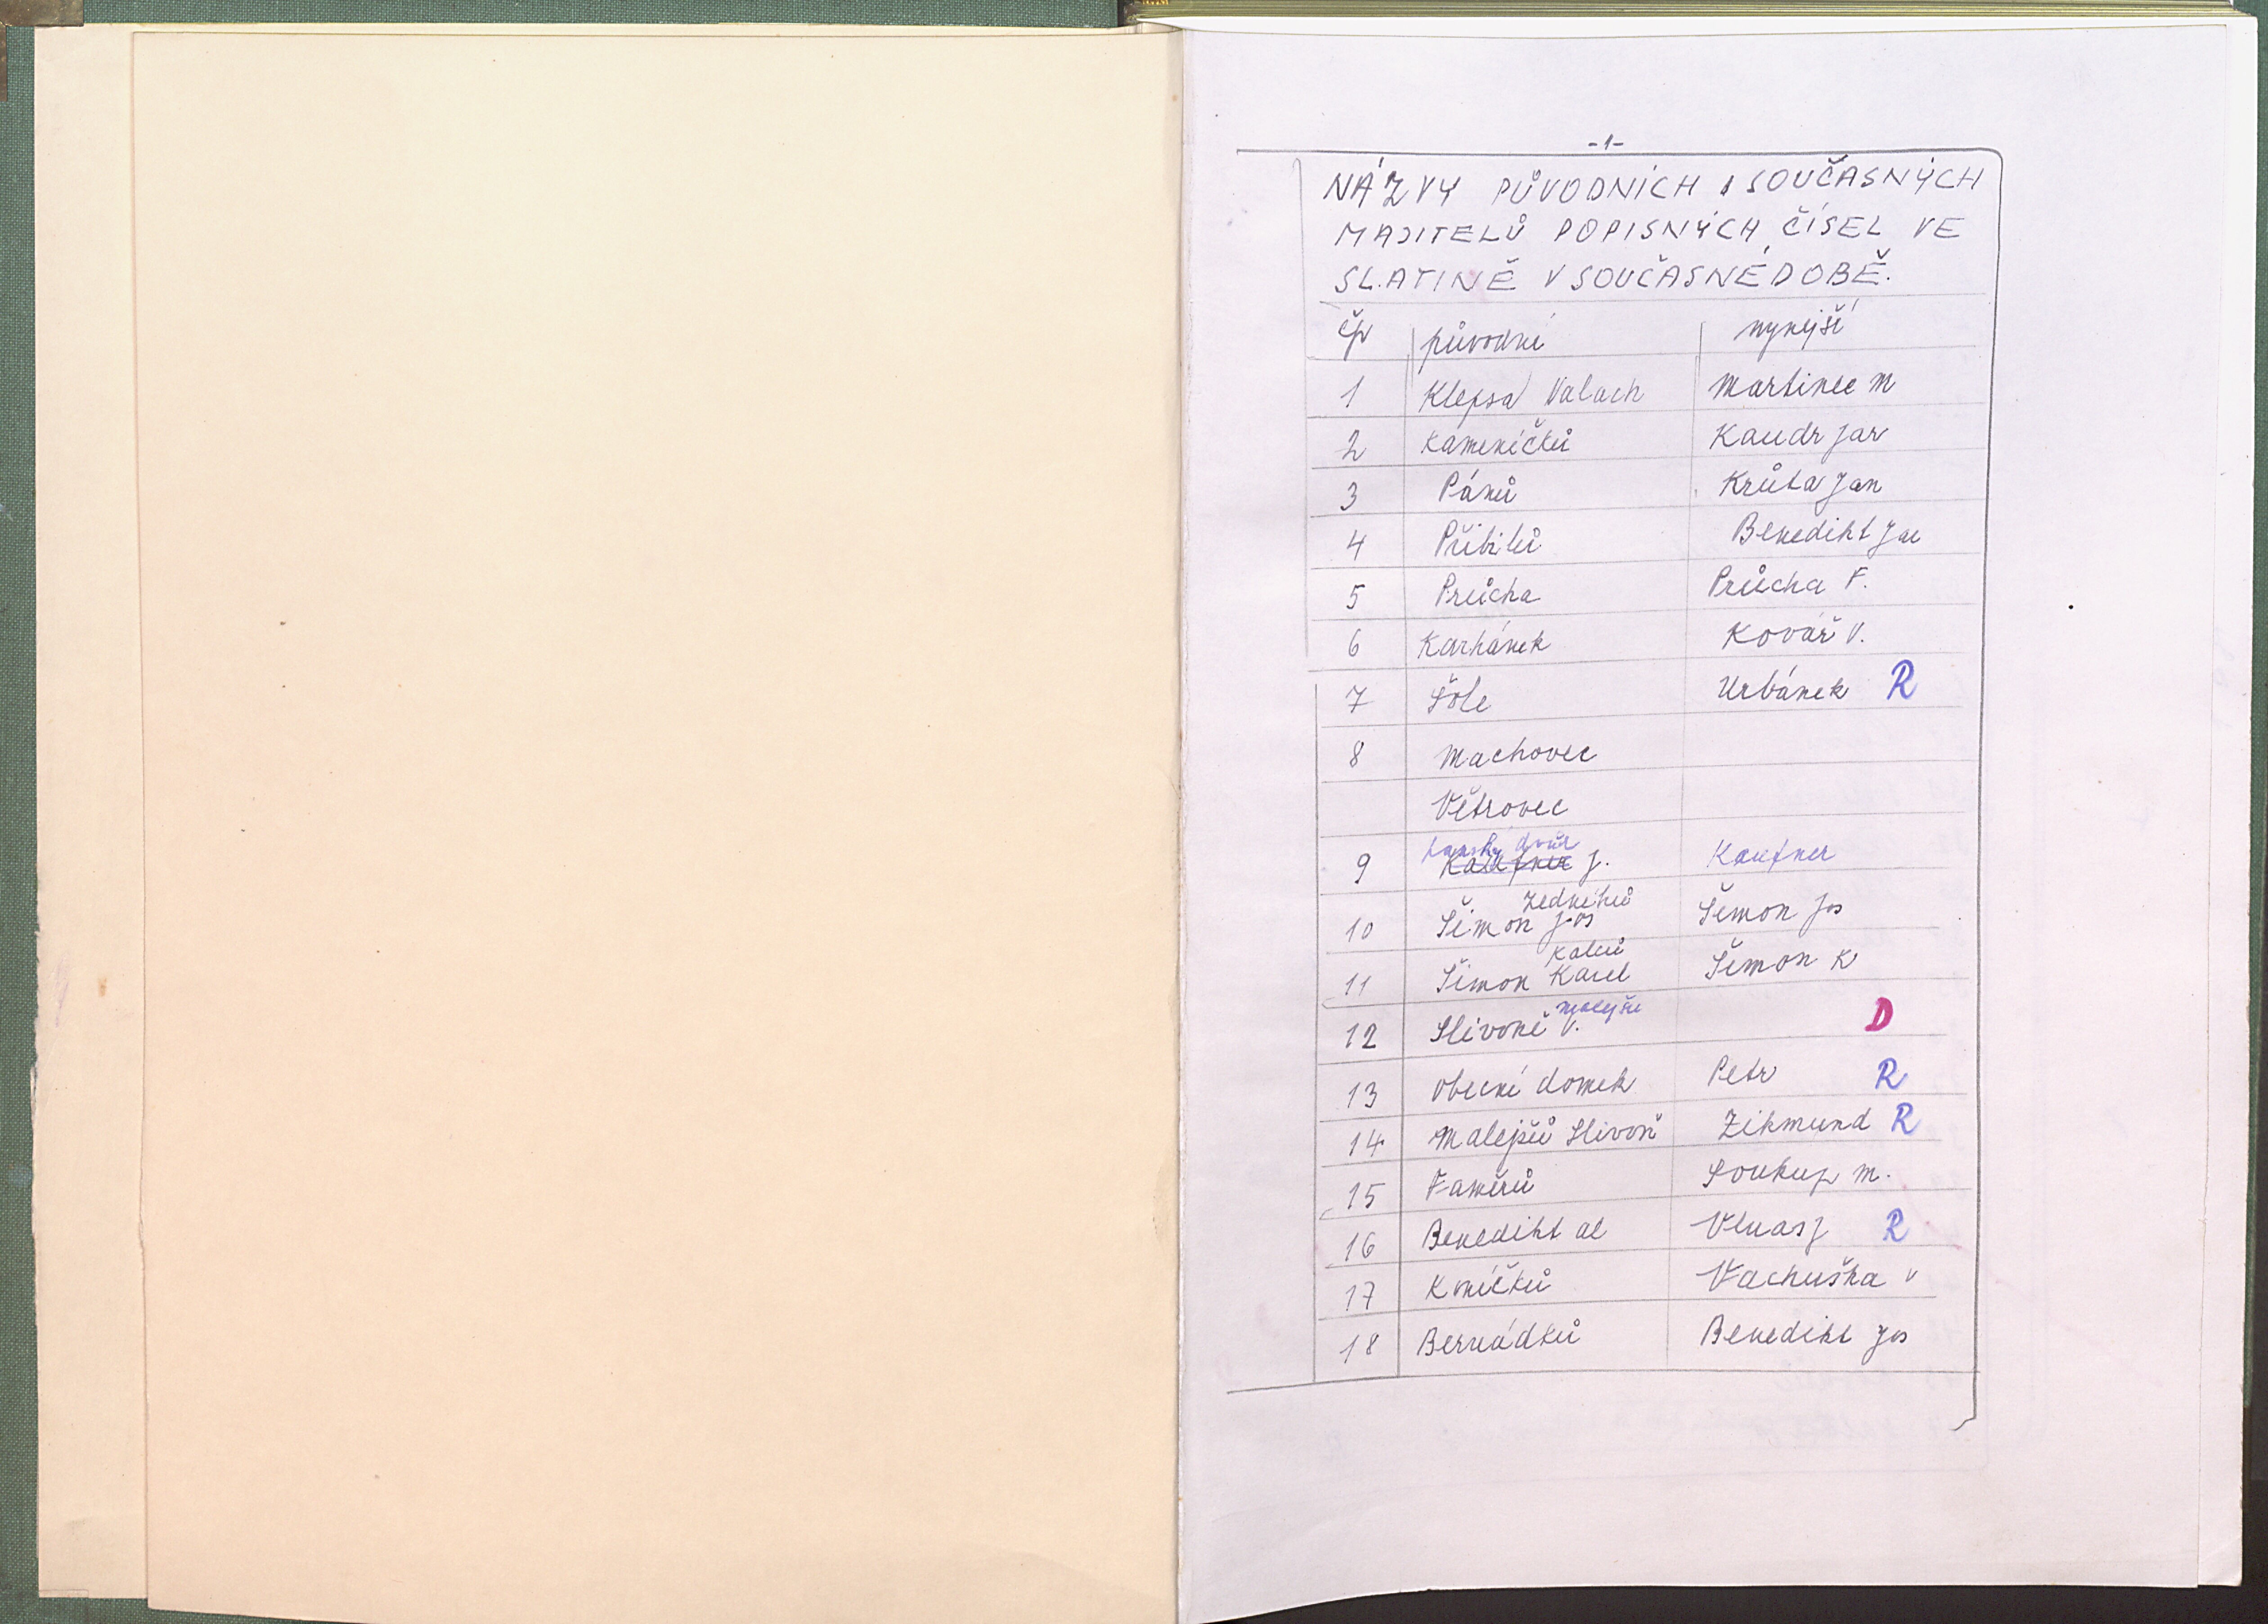 -1-
NÁZVY PŮVODNÍCH I SOUČASNÝCH
MAJITELŮ POPISNÝCH ČÍSEL VE
SLATINĚ V SOUČASNÉ DOBĚ.
čp původní nynější
1 Klepsa Valach Martinec M
2 Kameníčků Kaudr Jar
3 Pánů Krůta Jan
4 Přibilů Benedikt Jar
5 Průcha Průcha F.
6 Karhánek Kovář V.
7 Šole Urbánek R
8 Machovec
Větrovec
panský dvůr
9 Kaufner J. Kaufner
Zedníků
10 Šimon Jos Šimon Jos
Kalců
11 Šimon Karel Šimon K
12 Slivoně V. D
13 Obecní domek Petr R
14 Malejšů Slivoň Zikmund R
15 Faměrů Soukup M.
16 Benedikt al R
17 Koníčků Vachuška v
18 Bernádků Benedikt Jos